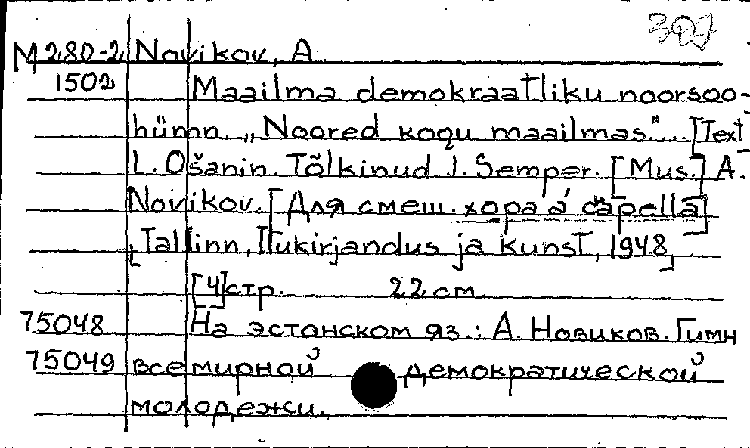 307
M 280-2 Novikov, A
1502 Maailma demokraatliku noorsoo-
hümn. „Noored kogu maailmas". [Text]
L. Ošanin. Tõlkinud J. Semper. [Mus.] A.
Novikov. [Для смеш. хора a' capella]
[Tallinn, Ilukirjandus ja kunst, 1948]
[4]стр. 22 см
75048 На эстонском яз.: А. Новиков. Гимн
75049 всемирной демократической
молодежи.